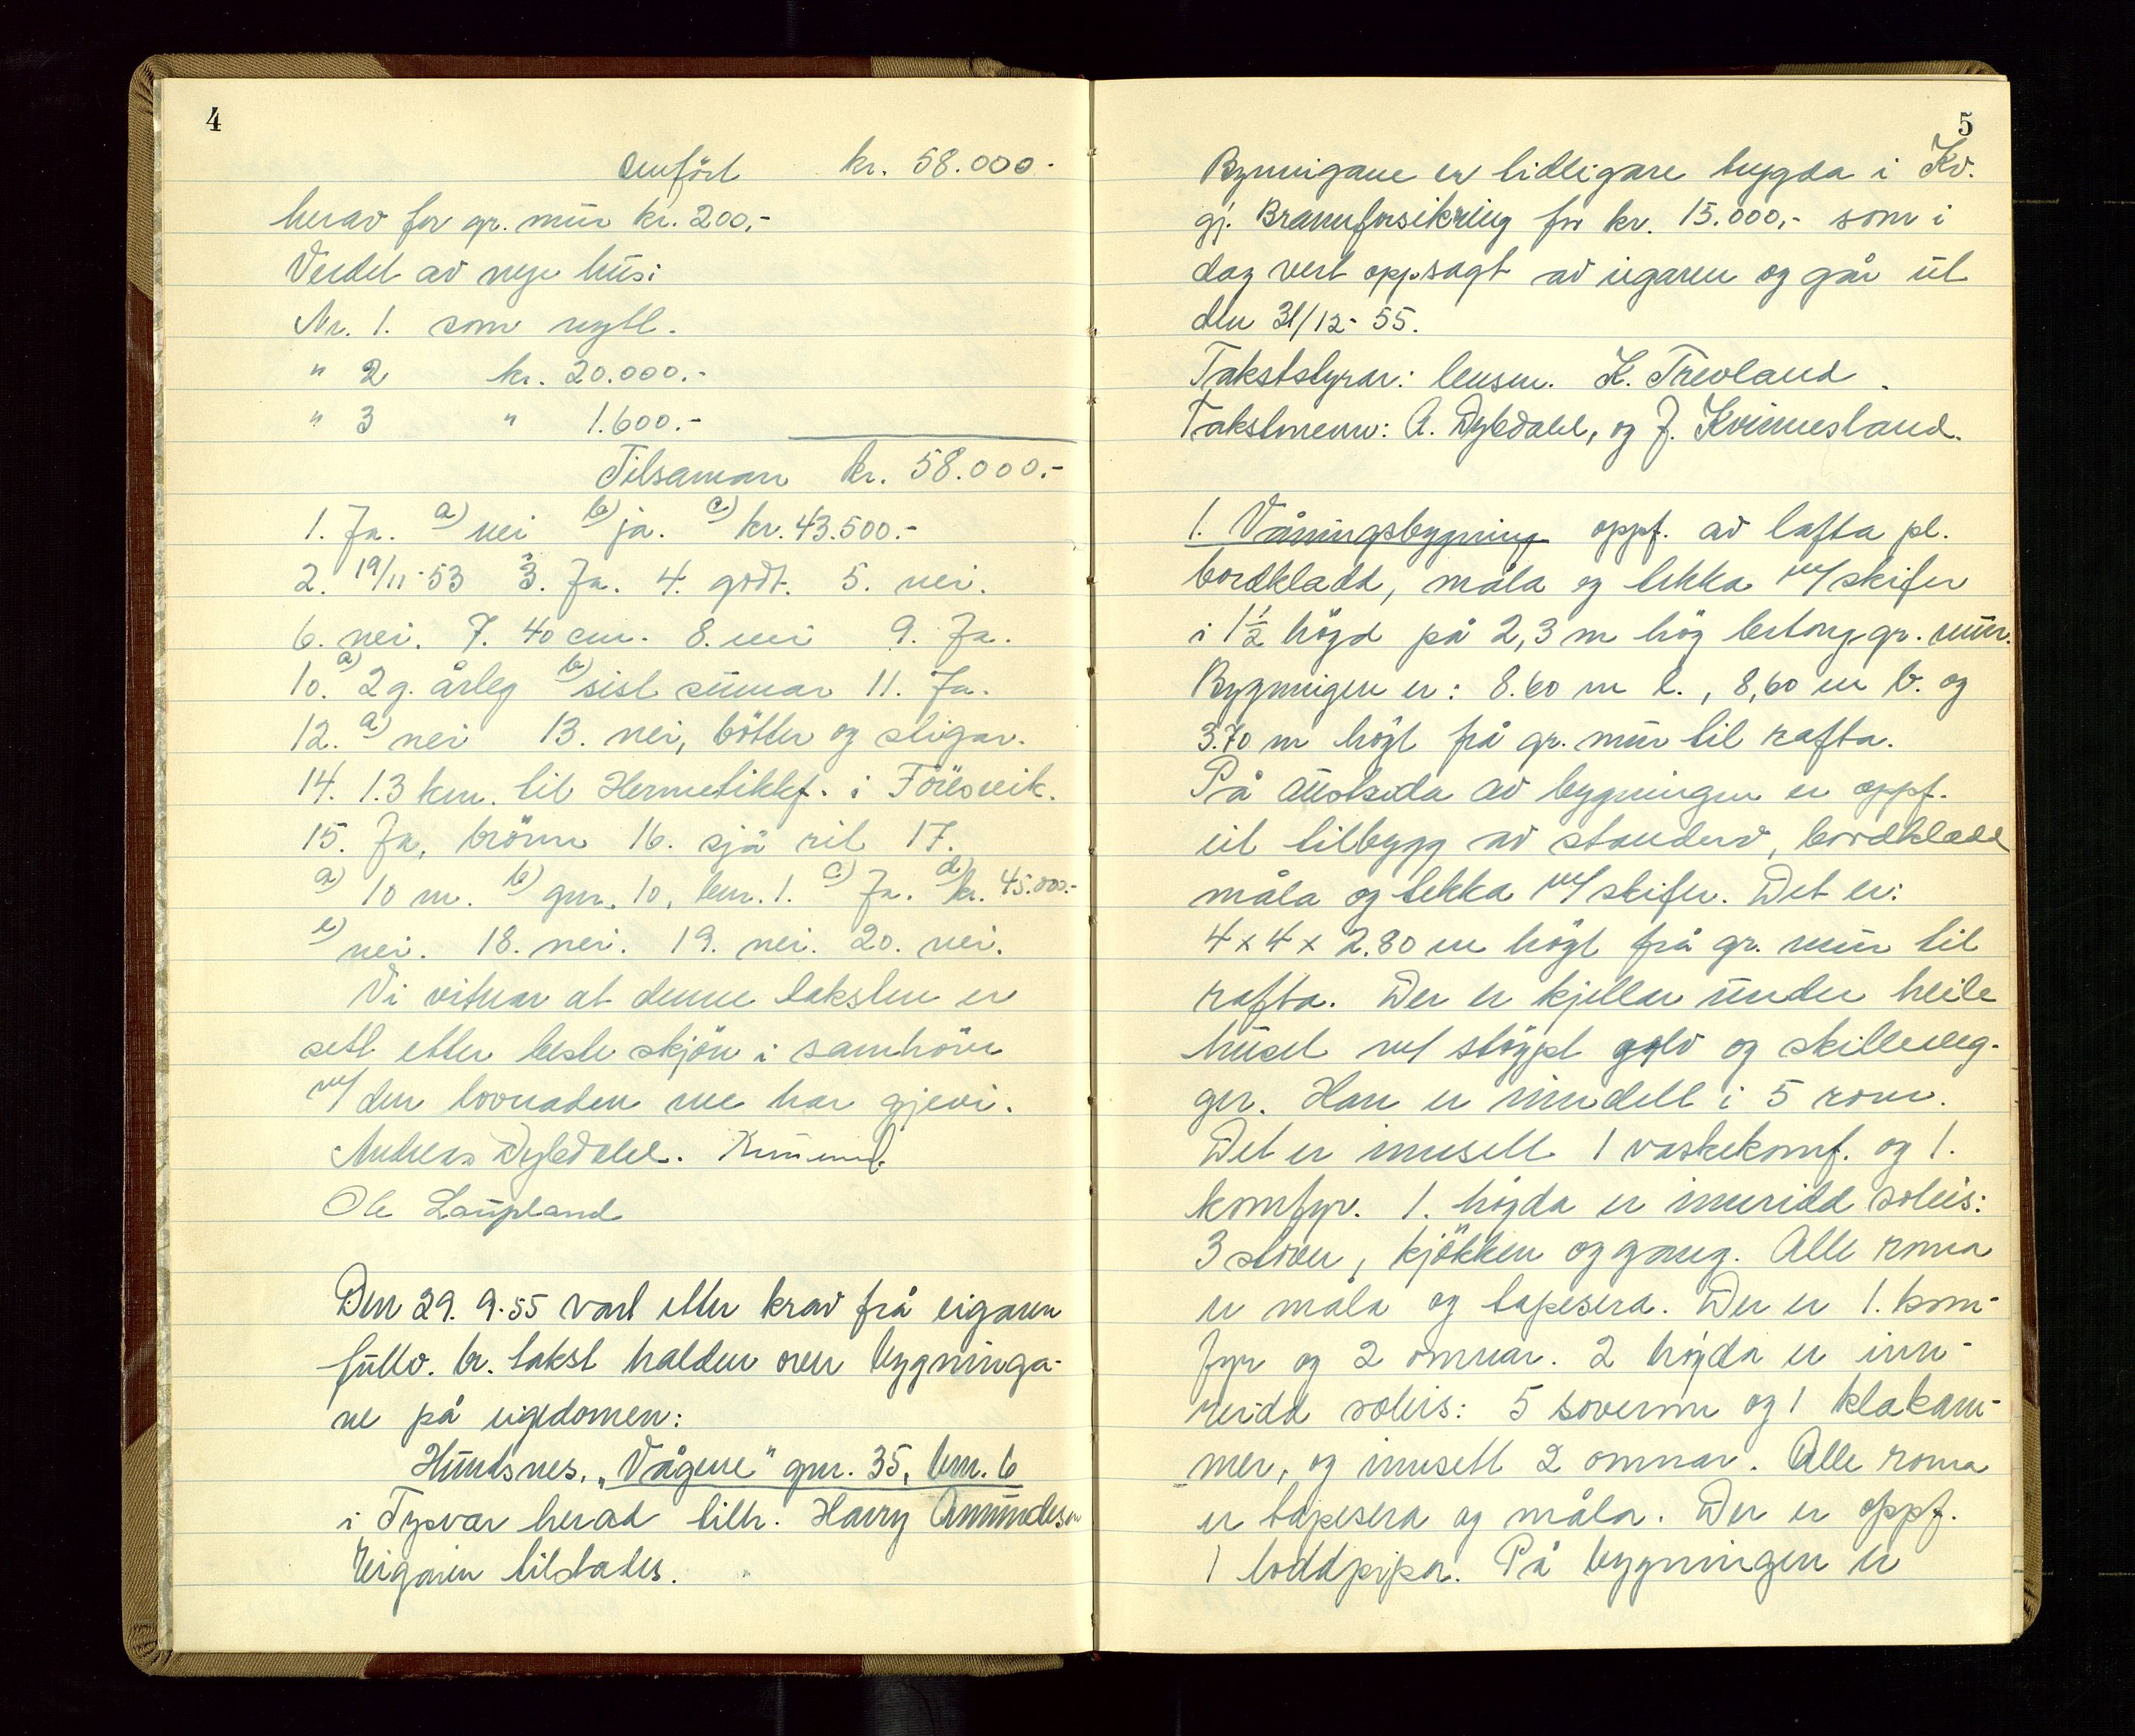 4
Omført kr. 58.000.-
herav for gr. mur kr. 200,-
Verdet av nye hus:
Nr. 1. som nytt.
" 2 kr. 20.000.-
" 3 " 1.600.-
Tilsaman kr. 58.000.-
1. Ja. a) nei b) ja. c) kr. 43.500.-
2. 19/11-53 3. Ja. 4. godt. 5. nei.
6. nei. 7. 40 cm. 8. nei 9. Ja.
10. a) 2 g. årleg b) sist sumar 11. Ja.
12. a) nei 13. nei, bötter og stigar.
14. 1.3 km. til Hermetikkf. i Föresvik.
15. Ja, brönn 16. sjå rit 17.
a) 10 m. b) gnr. 10, bnr. 1. c) Ja. d) kr. 45.000.-
e) nei. 18. nei. 19. nei. 20. nei.
Vi vitnar at denne taksten er
sett etter beste skjön i samhöve
m/ den lovnaden me har gjevi.
Andreas Dybdahl.
Ole Laupland
Den 29. 9.55 vart etter krav frå eigaren
fullv. br. takst halden over bygninga-
ne på eigedomen:
Hundsnes, „Vågene" gnr. 35, bnr. 6
i Tysvær herad tilh. Harry Amundsen
Eigaren tilstades.
5
Bygnigane er tidligare trygda i Kv.
gj. Brannforsikring for kr. 15.000,- som i
dag vert oppsagt av eigaren og går ut
den 31/12-55.
Takststyrar: lensm. K. Trevland.
Takstmenn: A. Dybdahl, og J. Kvinnesland.
1. Våningsbygning oppf. av lafta pl.
bordkladd, måla og tekka m/skifer
i 1 1/2 högd på 2,3 m hög betong gr. mur.
Bygnnigen er: 8.60 m l., 8,60 m b. og
3.70 m högt frå gr. mur til rafta.
På austsida av bygningen er oppf.
eit tilbygg av standerv, bordkledd
måla og tekka m/skifer. Det er:
4 x 4 x 2.80 m högt frå gr. mur til
rafta. Der er kjellar under heile
huset m/ stöypt golv og skilleveg-
ger. Han er inndelt i 5 rom.
Det er innsett 1 vaskekomf. og 1.
komfyr. 1. högda er innridd soleis:
3 stover, kjökken og gang. Alle roma
er måla og tapesera. Der er 1. kom-
fyr og 2 omnar. 2 högda er inn-
reidd soleis: 5 soverom og 1 klekam-
mer, og innsett 2 omnar. Alle roma
er tapesera og måla. Der er oppf.
1 loddpipa. På bygningen er